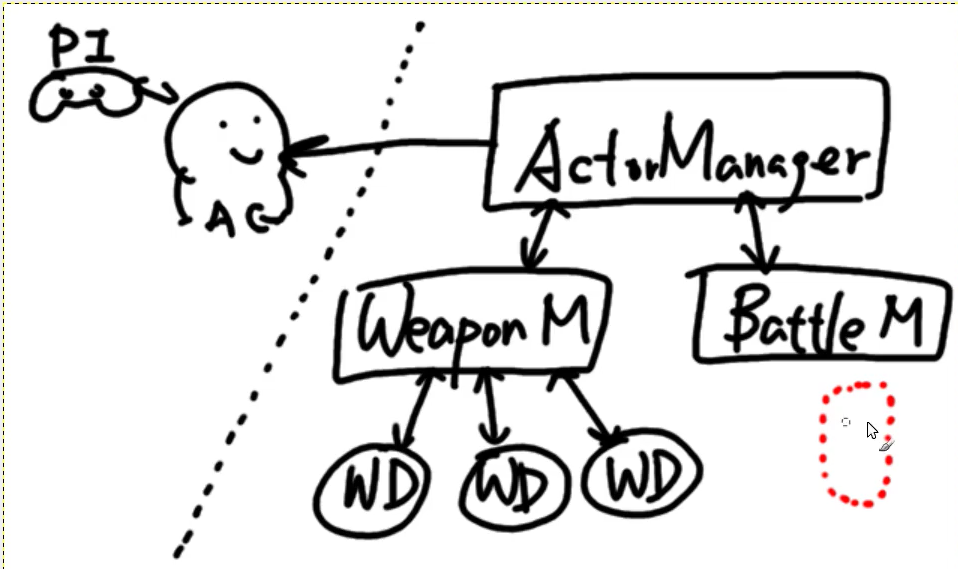 PI
AC
ActorManager
Weapon M
Battle M
WD
WD
WD